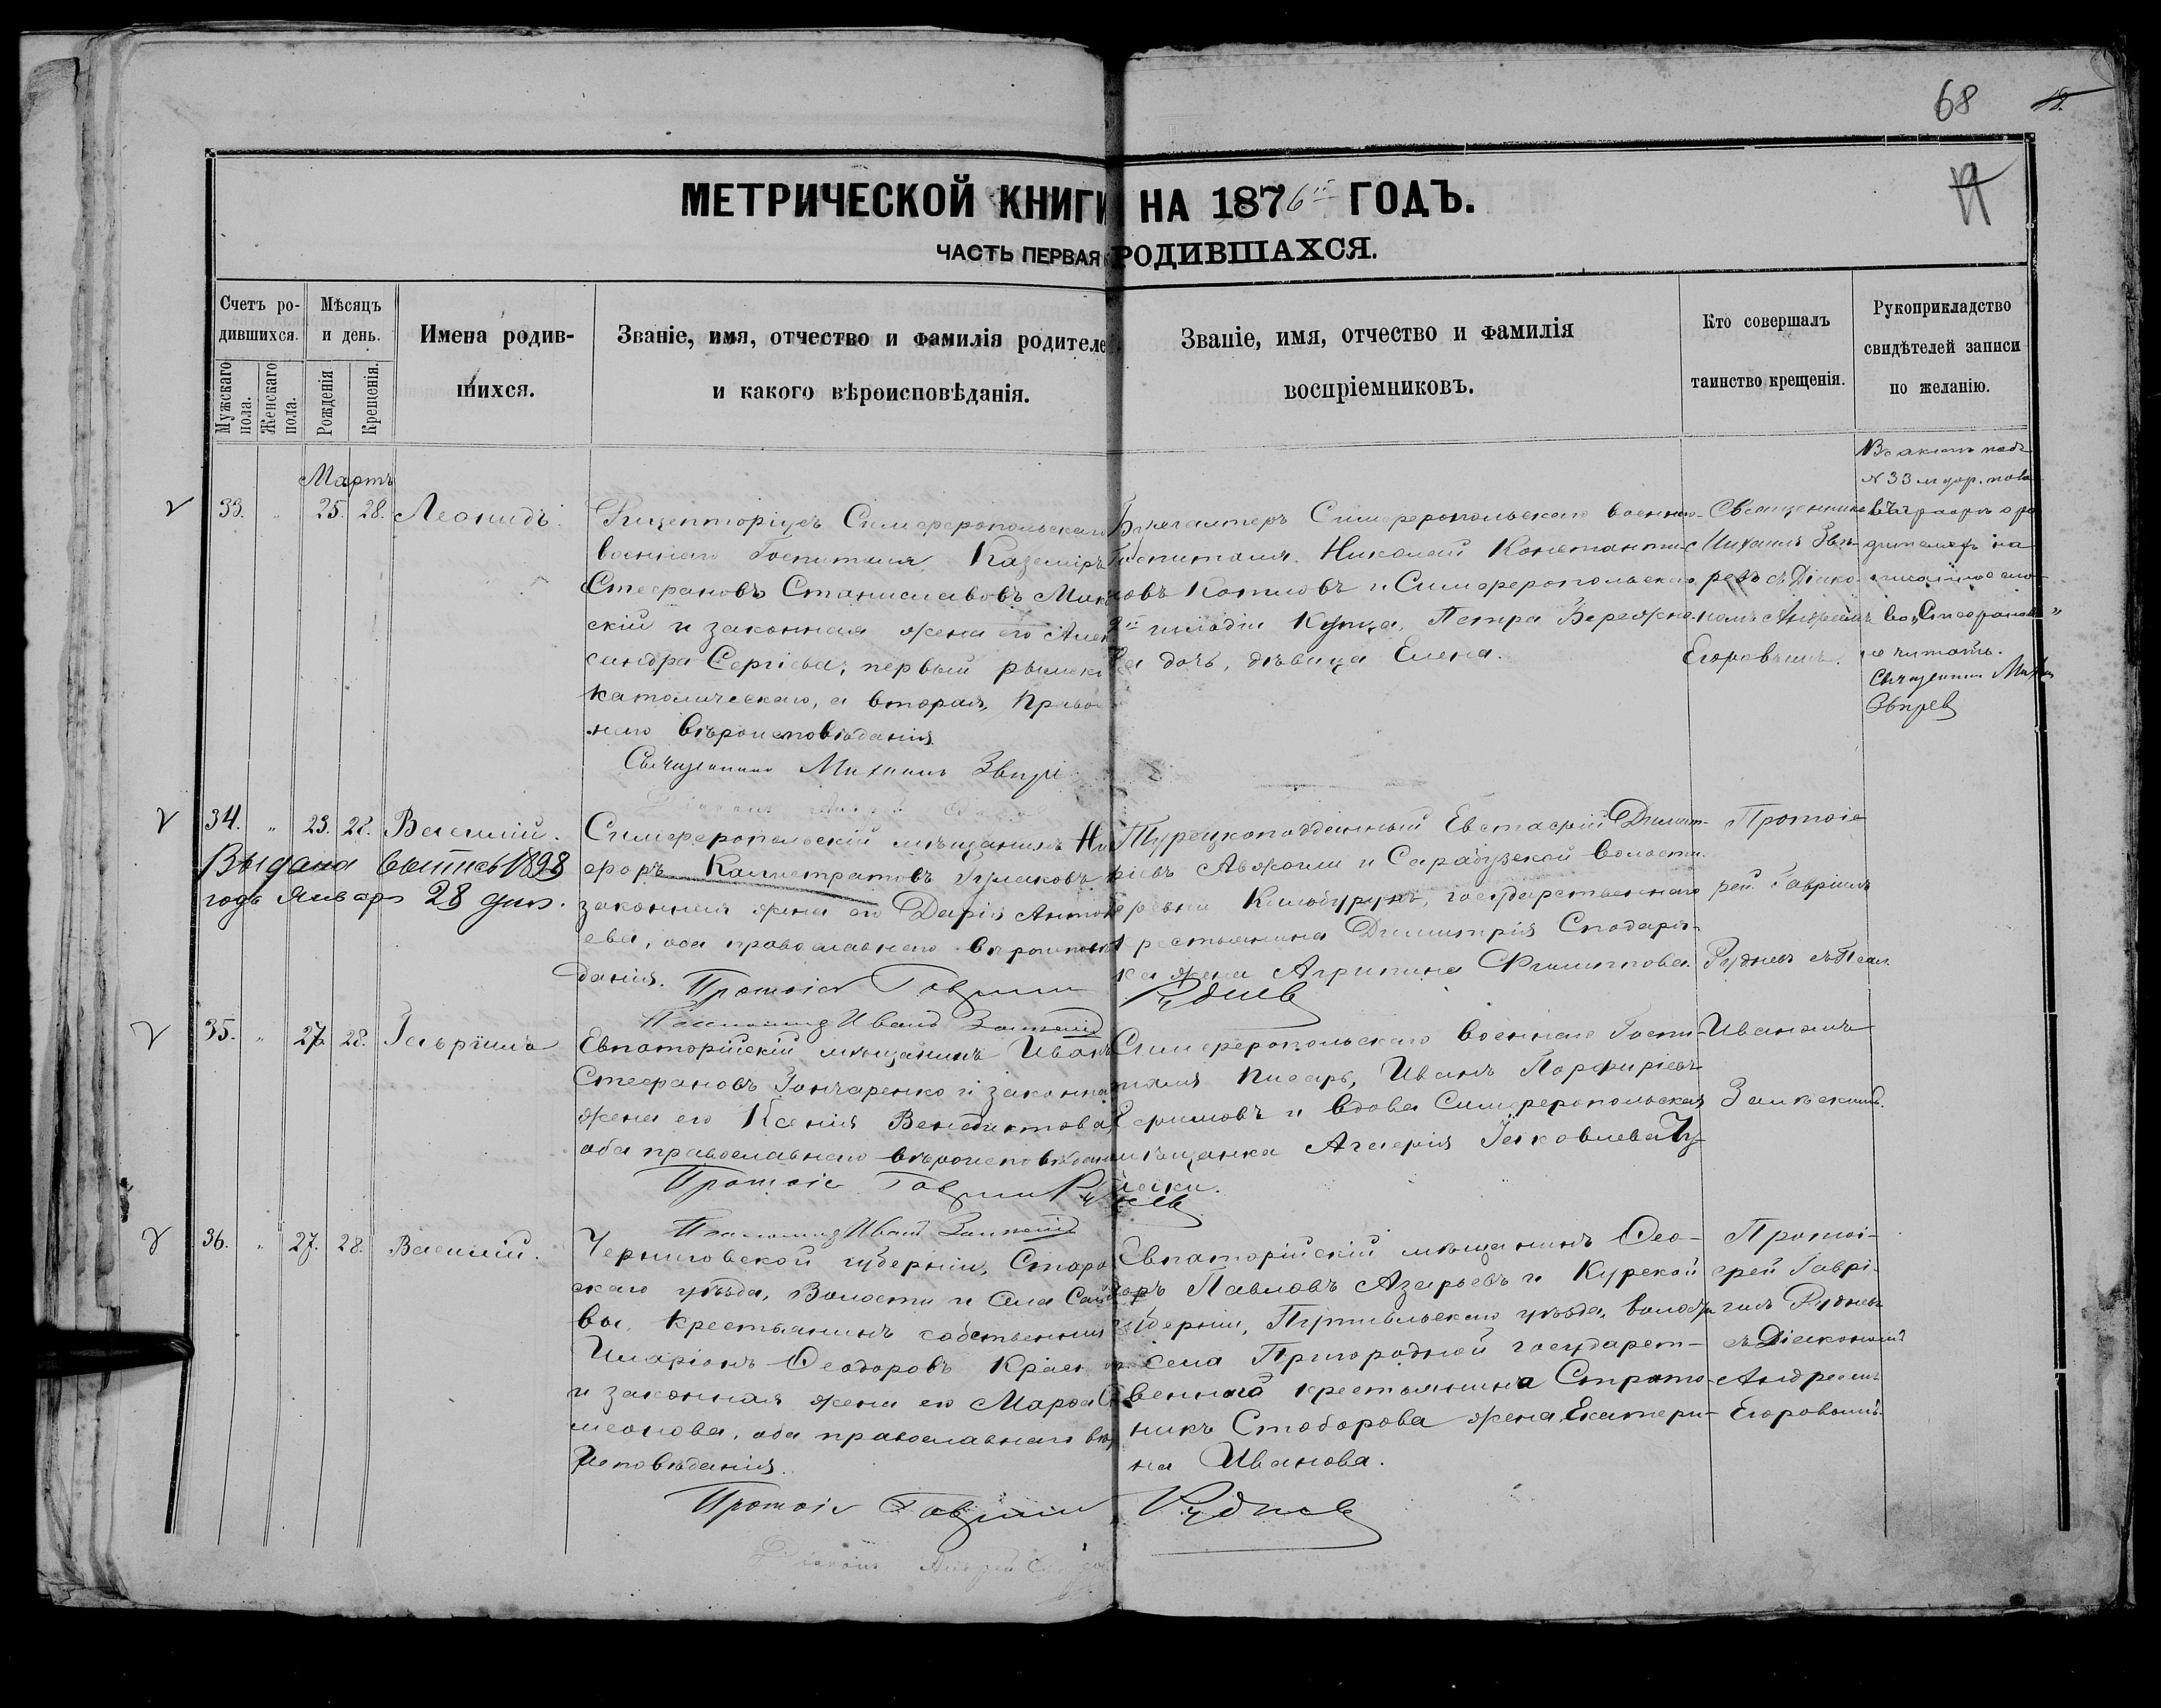 68
МЕТРИЧЕСКОЙ КНИГИ НА 1876й ГОДЪ.
ЧАСТЬ ПЕРВАЯ РОДИВШАХСЯ.
Счетъ ро-
дившихся.
Мужскаго пола.
Женскаго пола.
Мѣсяцъ
и день.
Рожденія
Крещенія.
Имена родив-
шихся.
Званіе, имя, отчество и фамилія родителе
и какого вѣроисповѣданія.
Званіе, имя, отчество и фамилія
воспріемниковъ.
Кто совершалъ
таинство крещенія.
Рукоприкладство
свидѣтелей записи
по желанію.
Мартъ
33. " 25. 28. Леонидъ.
Симферопольскаго
военнаго Госпиталя, Каземіръ
Стефановъ Станиславовъ
скій и законная жена его Алек
сандра Сергіева, первый римско
католическаго, а вторая, Право
наго вѣроисповѣданія
Священникъ Михаилъ
Бухгалтеръ Симферопольскаго военнаго
Госпиталя, Николай Константи-
новъ Котловъ и Симферопольскаго
2й гильдіи Купца, Петра Бережно
дочь, дѣвица Елена.
Священникъ
Михаилъ Звѣ-
ревъ съ Діако-
номъ Андреемъ
Егоровымъ.
Въ актѣ подъ
№ 33
на
писанное сло-
во „Стефановъ"
не читать.
Священникъ Мих
Звѣрев
34. " 23. 28. Василій.
Выдана выпись 1898
годъ Январь 28 дня.
Симферопольскій мѣщанинъ Ни
форъ Каллистратовъ Гулаковъ
законная жена его Дарія Антон
ева, оба православнаго вѣроисповѣ
данія.
Протоіе Гавріил Руднев
Псаломщ Иванъ
Турецкоподданный Евстафій Димит-
ріевъ и Сарабузской волости
Кильбурунъ, государственнаго
крестьянина Димитрія Сподаря-
ка жена Агрипина Филиппова.
Протоіе
рей Гавріилъ
Рудневъ съ Псал.
35. " 27. 28. Гавріилъ
Евпаторійскій мѣщанинъ Иванъ
Стефановъ Гончаренко и законна
жена его Ксенія Венедиктова,
оба православнаго вѣроисповѣдан
Протоіе Гавріил Руднев
Псаломщ Иван
Симферопольскаго военнаго Госпи-
таля писарь, Иванъ Порфиріевъ
Ефимовъ и вдова Симферопольская
мѣщанка Яковлева
Иваномъ
36. " 27. 28. Василій.
Черниговской губерніи, Старо
скаго уѣзда, Волости и Села
вы, Крестьянинъ собственникъ
Иларіонъ Феодоровъ
и законная жена его Марфа
меонова, оба православнаго вѣр
исповѣданія.
Протоіе Гавріил Руднев
Евпаторійскій мѣщанинъ Фео-
доръ Павловъ Азарьевъ и Курской
губерніи, Путивльскаго уѣзда, волости
села Пригородной государст-
веннаго крестьянина Страто-
никъ Стоборова жена Екатери-
на Иванова.
Протоі-
ерей Гаврі-
илъ Рудневъ
съ Діакономъ
Андреемъ
Егоровымъ.